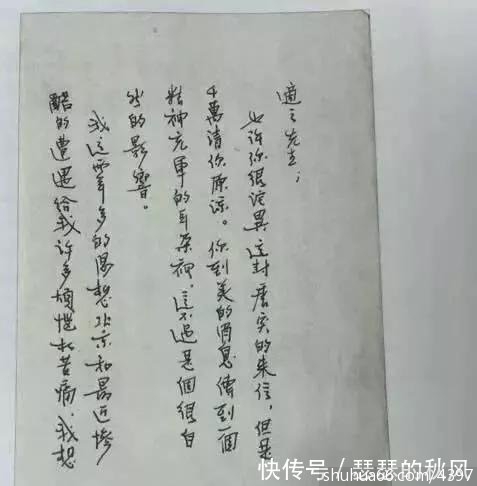 適之先生；
也許你很詫異這封唐突的來信，但是
千萬請你原諒。你到美的消息傳到一個
精神充軍的耳朵裡，這不過是個很自
然的影響。
我這兩年多的渴想北京和最近慘
酷的遭遇給我許多煩惱和苦痛．我想
快传号／琴瑟的秋风
shuhua66.com/4397